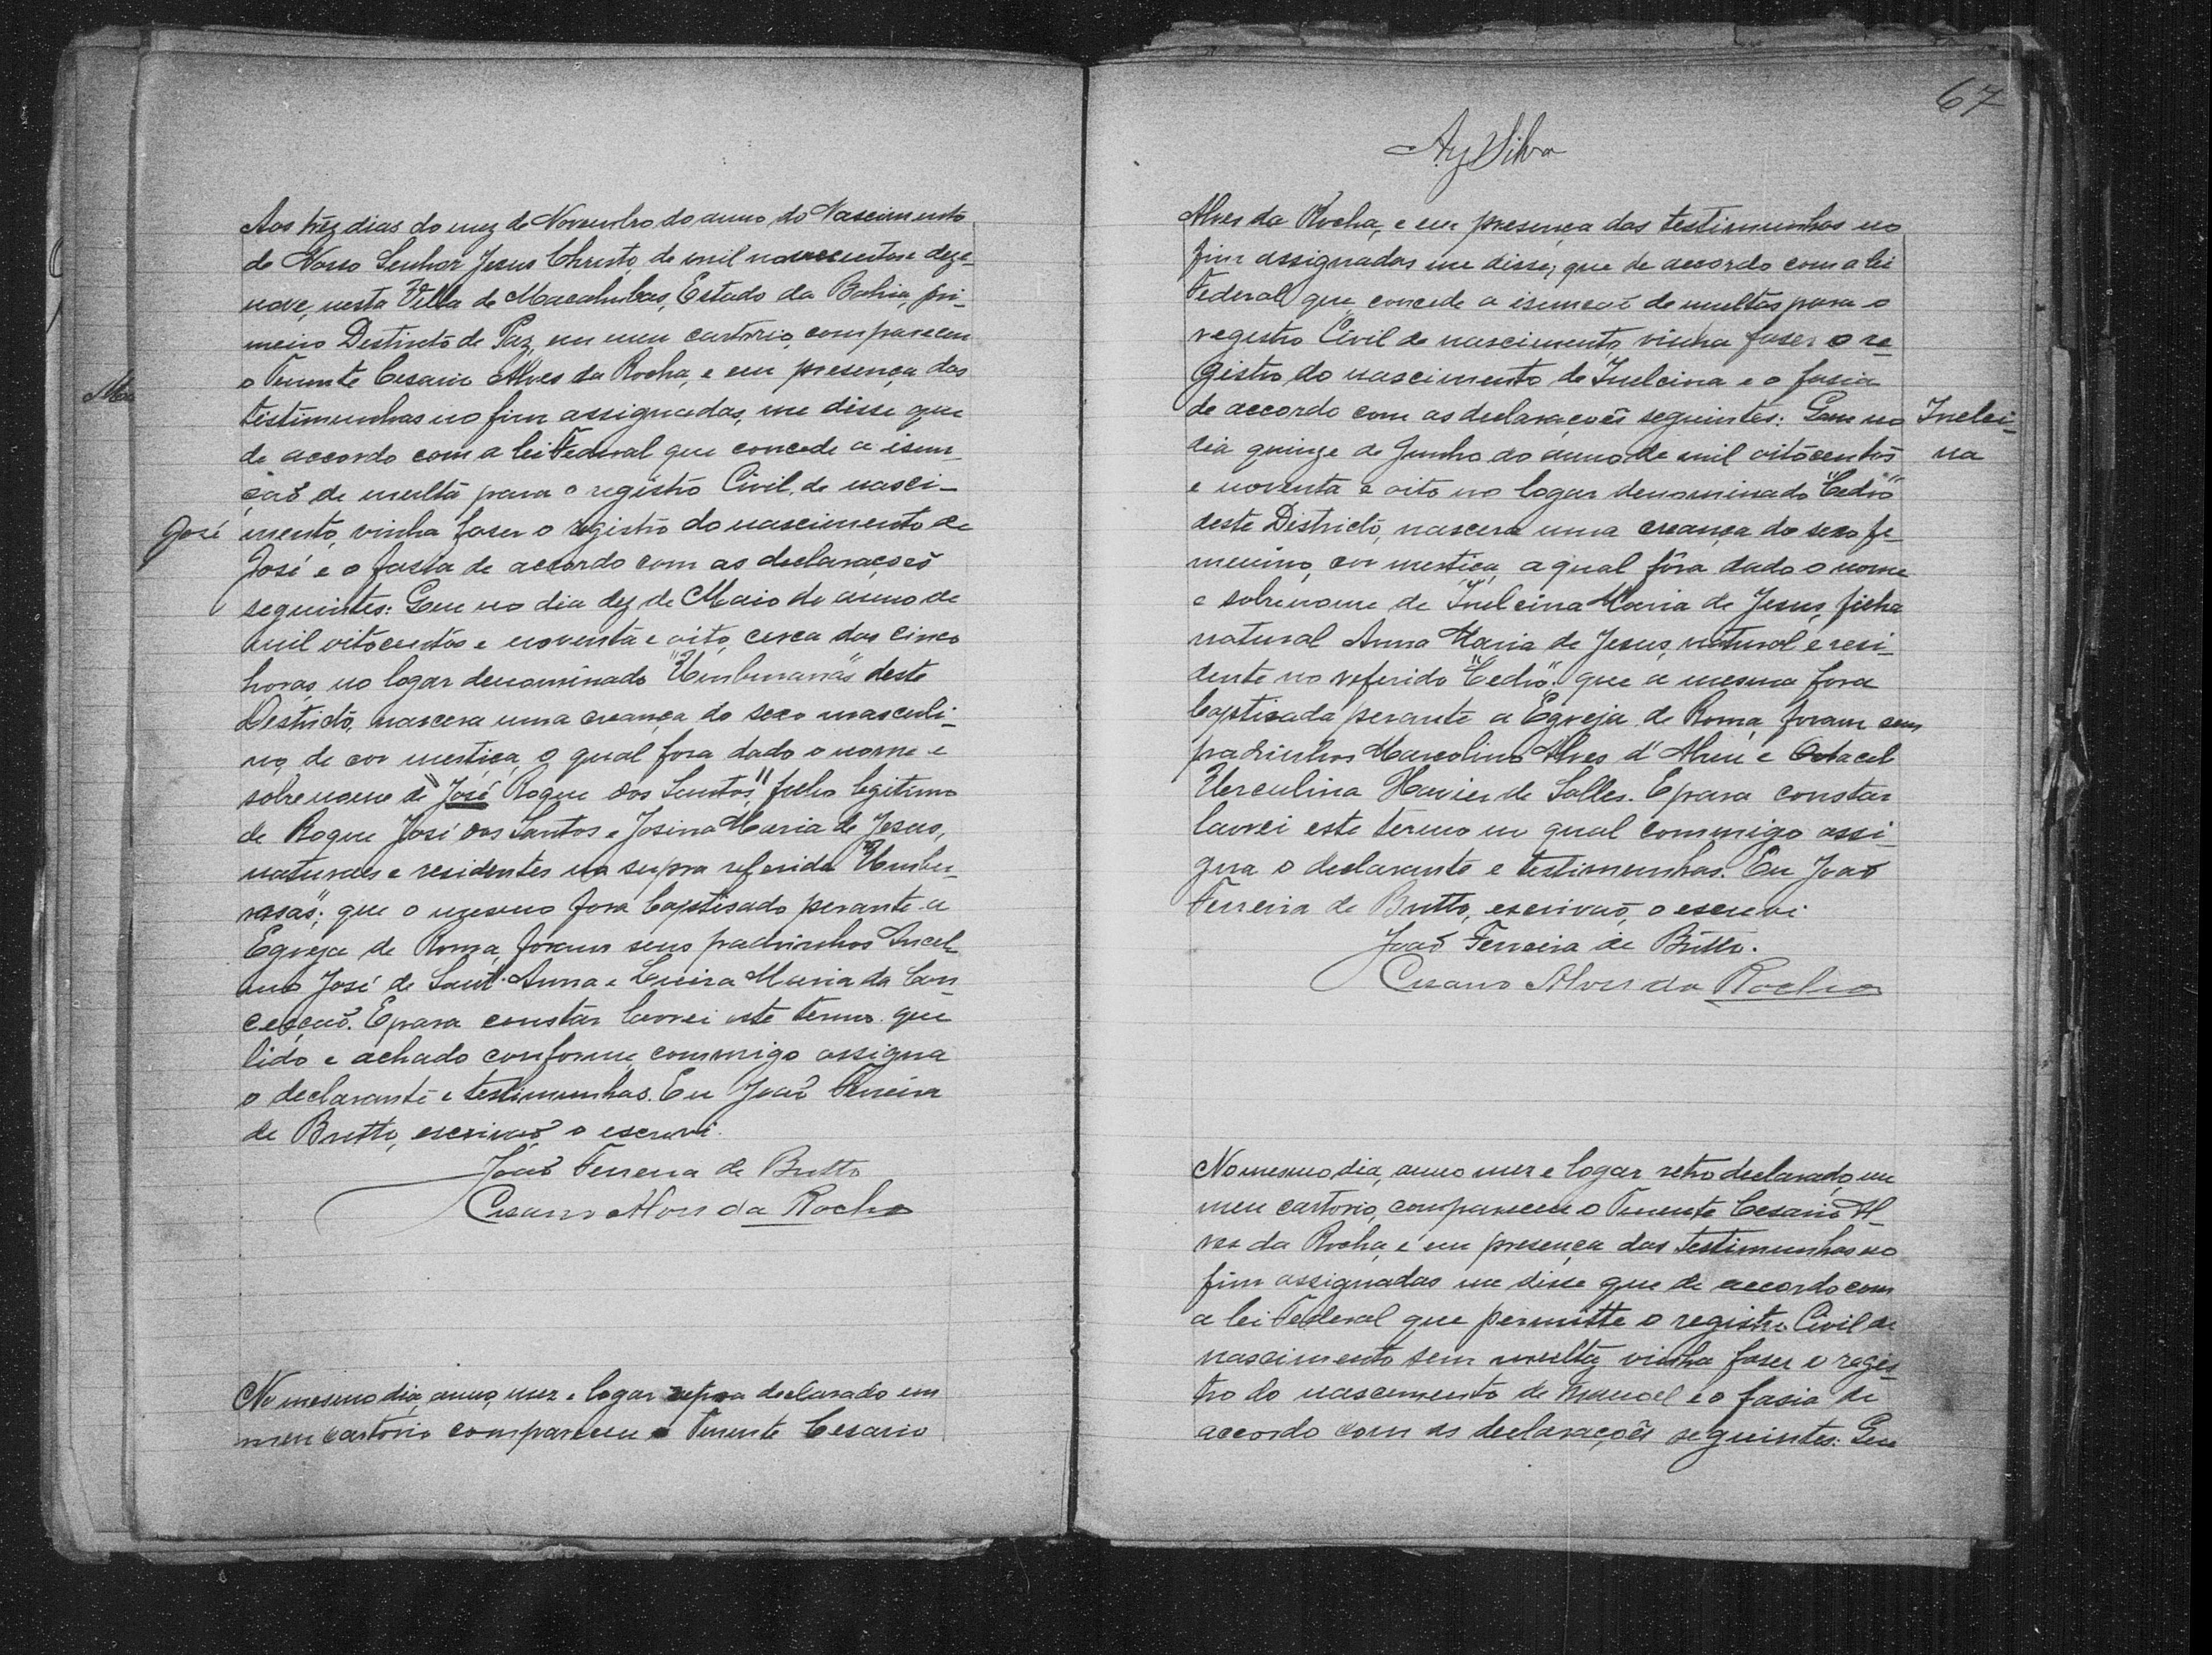 Aos trez dias do mez de Novembro do anno do Nascimento
de Nosso Senhor Jesus Christo, de mil novecentos e deze-
nove, nesta Villa de Macahubas, Estado da Bahia, pri-
meiro Destricto de Paz, em meu cartorio, compareceu
o Tenente Cesario Alves da Rocha, e em presença das
testimunhas no fim assignadas, me disse que
de accordo com a lei Federal que concede a isem
çaõ de multa para o registro Civil, de nasci-
José
mento, vinha faser o registro do nascimento de
José e o fasia de accordo com as declaraçoẽs
seguintes: Que no dia dez de Maio do anno de
mil oitocentos e noventa e oito, cerca das cinco
horas, no logar denominado "Umburanas" deste
Destricto, nascera uma creança do sexo masculi-
no, de cor mestiça, o qual fora dado o nome e
sobrenome de "José Roque dos Santos", filho legitimo
de Roque José dos Santos e Josina Maria de Jesus,
naturaes e residentes na supra referida "Umbu-
ranas"; que o mesmo fora baptisado perante a
Egreja de Roma, foram seus padrinhos Ancel
mo José de Sant'Anna e Maria da Con
ceiçaõ. E para constar lavrei este termo que
lido e achado conforme, commigo assigna
o declarante e testimunhas. Eu Joaõ Ferreira
de Britto, escrivaõ o escrevi.
Joaõ Ferreira de Britto
Cesario Alves da Rocha
No mesmo dia, anno, mez e logar supra declarado em
meu cartorio compareceu o Tenente Cesario
67
Ay Silva
Alves da Rocha, e em presença das testimunhas no
fim assignadas me disse, que de accordo com a lei
Federal que concede a isemçaõ de multas para o
registro Civil de nascimento, vinha faser o re-
gistro do nascimento de Inelcina e o fasia
de accordo com as declaraçoẽs seguintes: Que no
Inelci-
na
dia quinze de Junho do anno de mil oitocentos
e noventa e oito no logar denominado "Cedro"
deste Districto, nascera uma creança do sexo fe-
menino, cor mestiça, a qual fôra dado o nome
e sobrenome de Inelcina Maria de Jesus, filha
natural Anna Maria de Jesus, natural e resi-
dente no referido "Cedro"; que a mesma fora
baptisada perante a Egreja de Roma, foram seus
padrinhos Marcolino Alves d'Abreu e
Herculina Xavier de Salles. E para constar
lavrei este termo em qual commigo assi-
gna o declarante e testimunhas. Eu Joaõ
Ferreira de Britto, escrivaõ, o escrevi.
Joaõ Ferreira de Britto.
Cesario Alves da Rocha
No mesmo dia, anno mez e logar retro declarado, em
meu cartorio, compareceu o Tenente Cesario Al-
ves da Rocha, e em presença das testimunhas no
fim assignadas me disse que de accordo com
a lei Federal que permitte o registro Civil de
nascimento sem multa, vinha faser o regis-
tro do nascimento de Manoel e o fasia de
accordo com as declaraçoẽs seguintes: Que